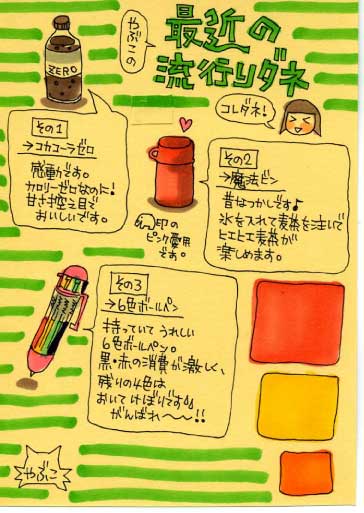 やぶこの
最近の
流行りダネ
ZERO
コレダネ!
その1
→コカコーラゼロ
感動です。
カロリーゼロなのに!
甘さ控え目で
おいしいです。
その2
→魔法ビン
昔なつかしです♪
氷を入れて麦茶を注いで
ヒエヒエ麦茶が
楽しめます。
印の
ピンク愛用
です。
その3
→6色ボールペン
持っていてうれしい
6色ボールペン。
黒・赤の消費が激しく、
残りの4色は
おいてけぼりです
がんばれ〜〜!!
やぶこ